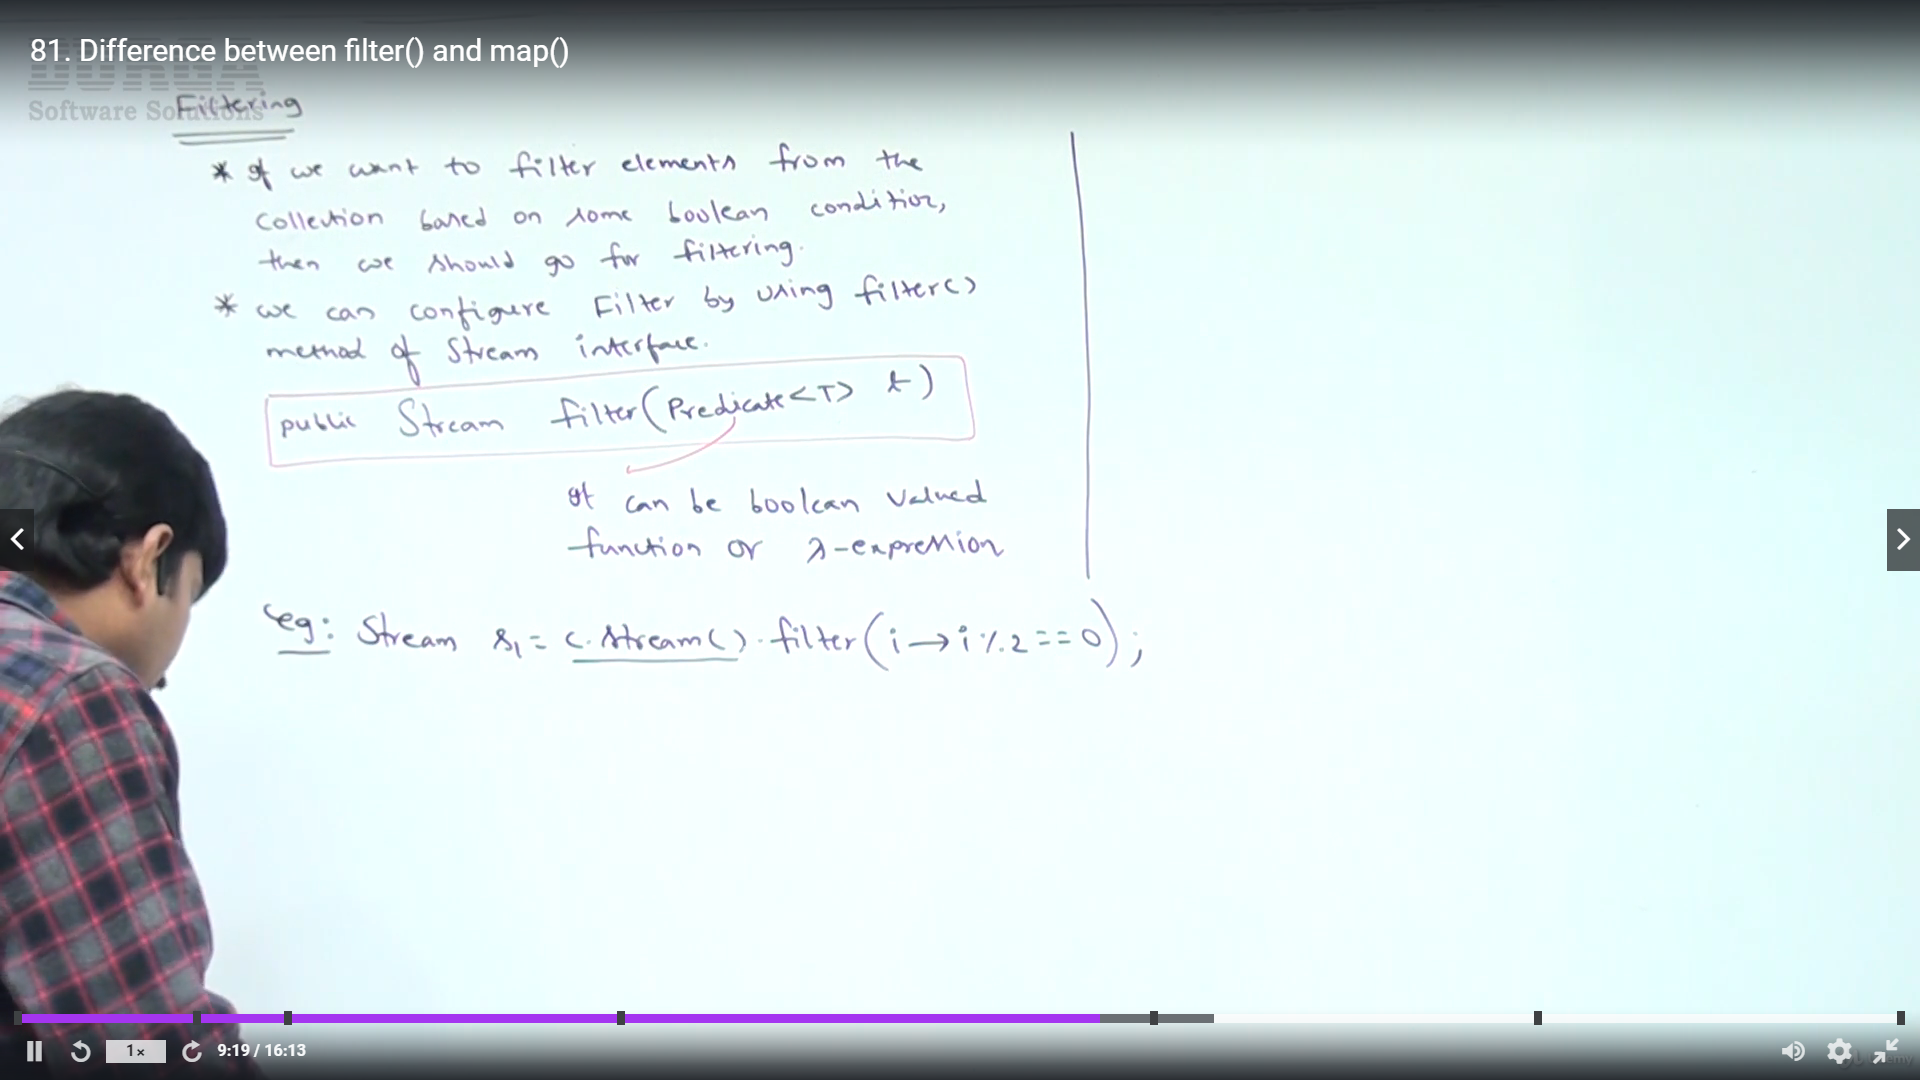 81. Difference between filter() and map()
DURGA
Software Solutions
Filtering
* If we want to filter elements from the
collection based on some boolean condition,
then we should go for filtering.
* we can configure Filter by using filter()
method of Stream interface.
public Stream filter(Predicate<T> t)
It can be boolean valued
function or λ-expression
eg: Stream s1 = c.stream().filter(i→i%2==0);
1×
9:19 / 16:13